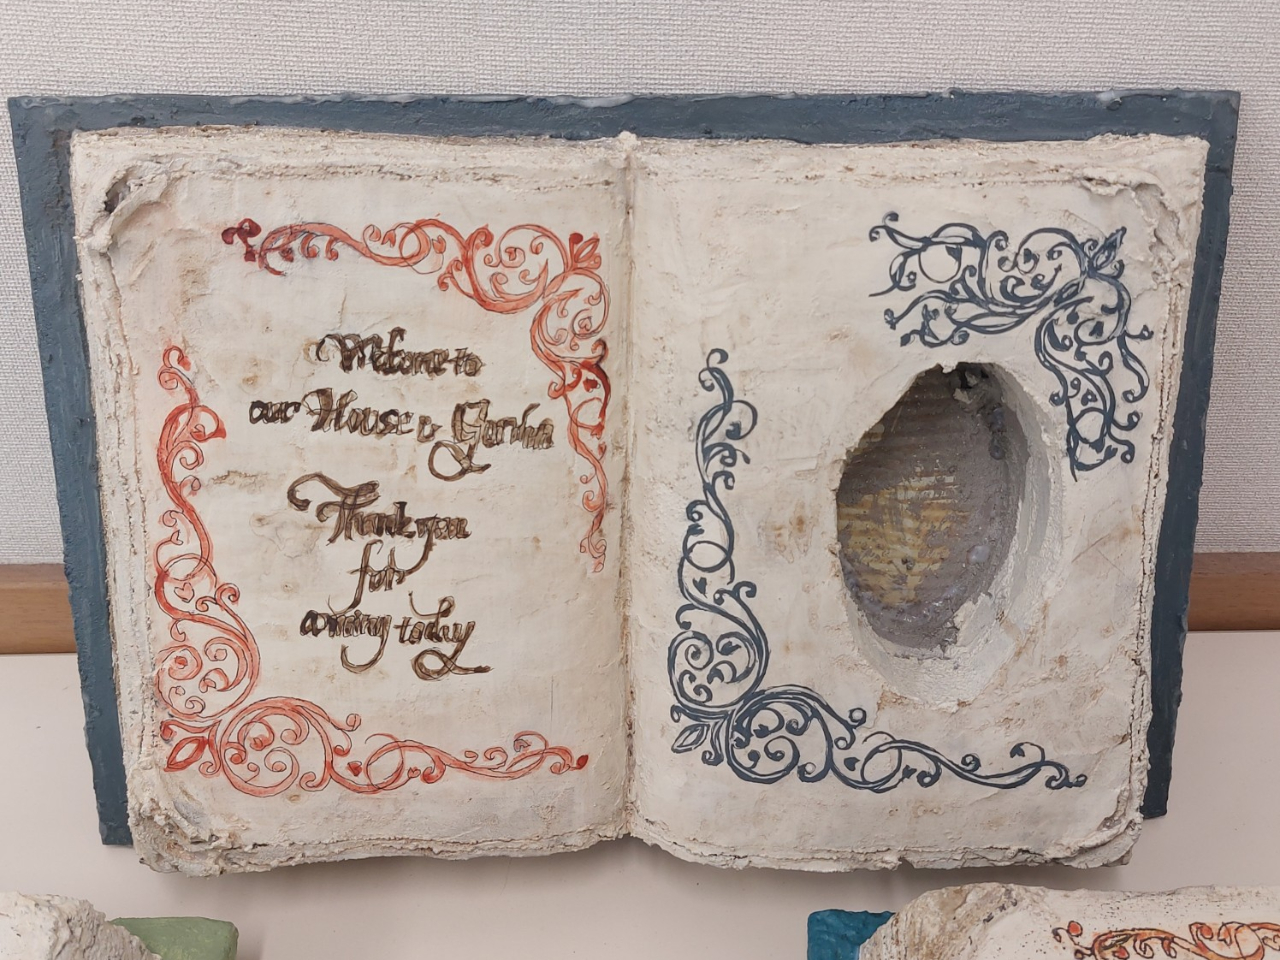 Welcome to
our House & Garden
Thank you
for
coming today